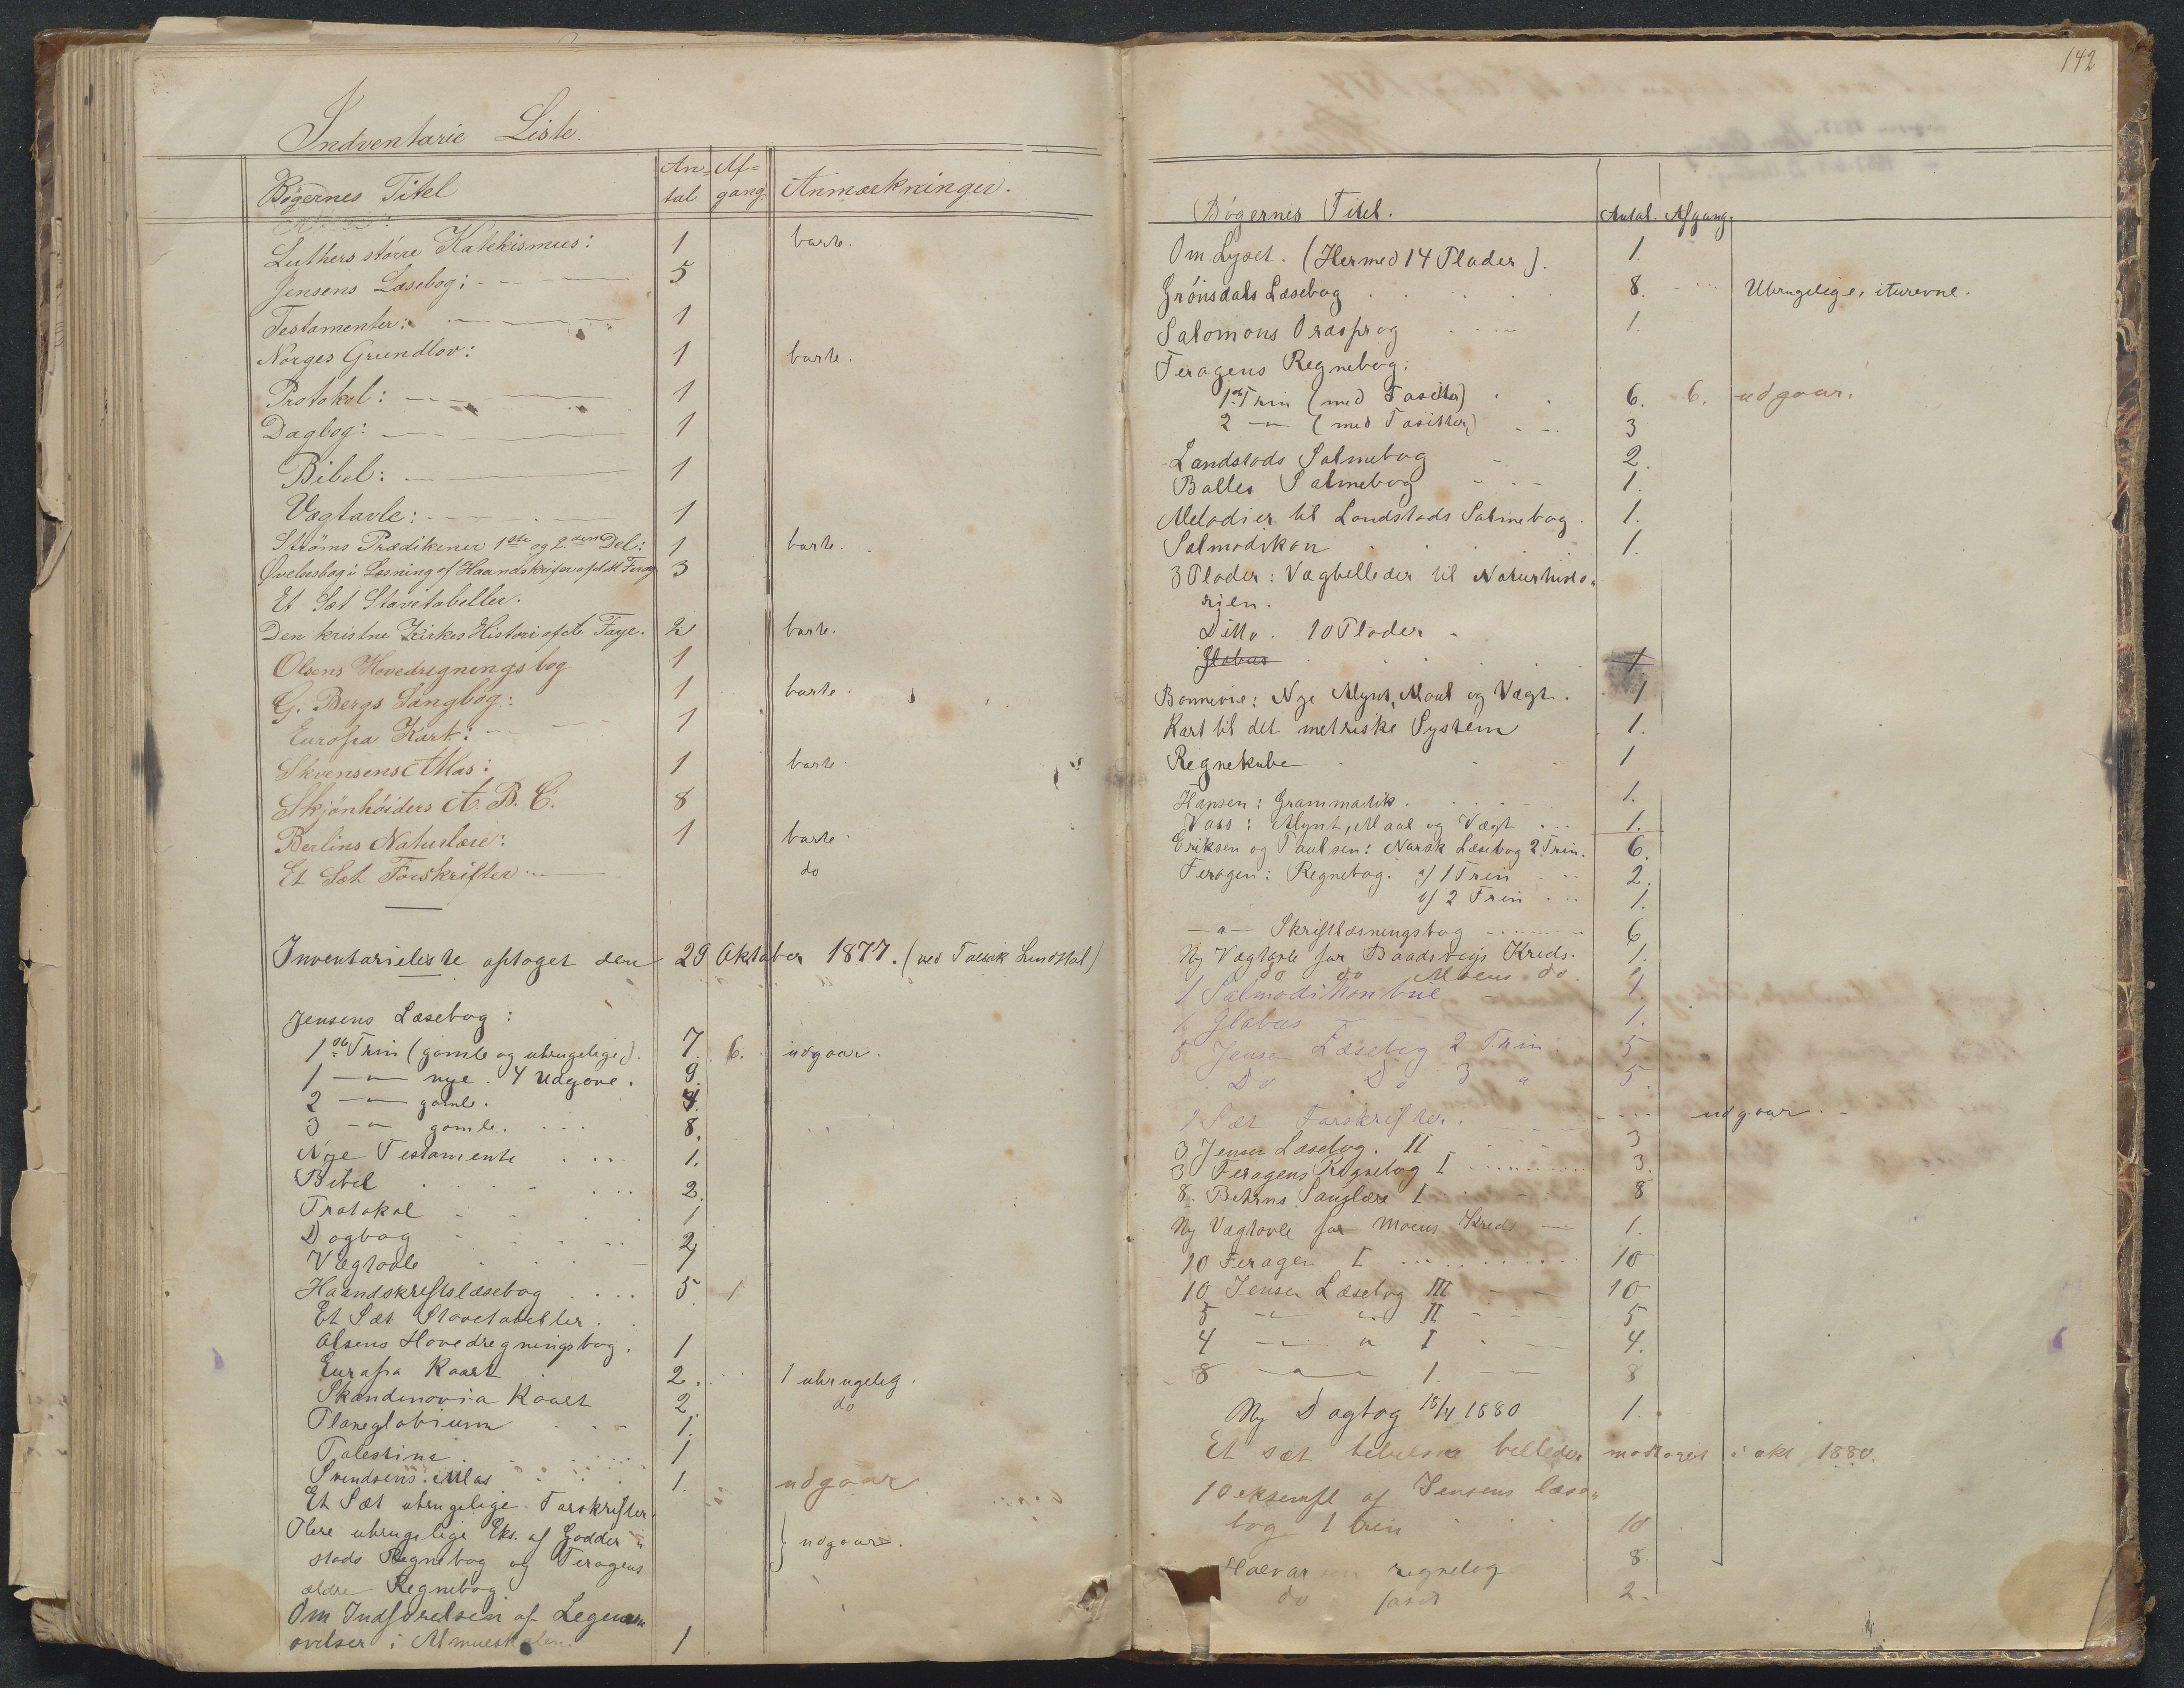 Indventarie Liste.
Bøgernes Titel An-tal Af-gang. Anmærkninger.
Luthers større Katekismus: 1 borte.
Jensens Læsebog: 5
Testamenter: 1
Norges Grundlov: 1 borte.
Protokol: 1
Dagbog: 1
Bibel: 1
Vægtavle: 1
Strøms Prædikener 1ste og 2den Del: 1 borte.
Øvelsesbog i Læsning af Haandskrifter af 3
Et Sæt Stavetabeller.
Den kristne Kirkes Histori af A. Faye. 2 borte.
Olsens Hovedregningsbog 1
G. Bergs Sangbog: 1 borte.
Europa Kart: 1
Atlas: 1 borte.
Skjönhöiders A. B. C. 8
Berlins Naturlære: 1 borte.
Et Sæt Forskrifter do
Inventarieliste optaget den 29 Oktober 1877. (ved
Jensens Læsebog:
1ste Trin (gamle og ubrugelige). 7. 6. udgaar.
1 -"- nye. 4 Udgave. 9.
2 -"- gamle.
3 -"- gamle. 8.
Nye Testamente 1.
Bibel 2.
Protokol 1
Dagbog 2
Vægtavle 1
Haandskriftslæsebog 5. 1
Et Sæt Stavetabeller.
Olsens Hovedregningsbog. 1
Europa Kaart 2. 1 ubrugelig.
Skandinavia Kaart 2. do
Planeglobium 1.
Palestina 1
Svendsens Atlas 1. udgaar
Et Sæt ubrugelige Forskrifter.
Flere ubrugelige Eks. af Godder-
stads Regnebog og Feragens } udgaar.
ældre Regnebog
Om Indførelsen af Legems
øvelser i Almueskolen. 1
142
Bøgernes Titel. Antal. Afgang.
Om Lyset. (Hermed 14 Plader). 1.
Grönsdals Læsebog 8. Ubrugelige, iturevne.
Salomons Ordsprog 1.
Feragens Regnebog:
1ste Trin (med Fasitter) 6. 6. udgaar.
2 -"- (med Fasitter) 3
Landstads Salmebog 2.
Balles Salmebog 1.
Melodier til Landstads Salmebog. 1.
Salmodikon 1.
3 Plader: Vægbilleder til Naturhisto-
rien.
Ditto. 10 Plader -
Globus 1
Bonnevie: Nye Mynt, Maal og Vægt. 1
Kart til det metriske System 1.
Regnekube 1
Hansen: Grammatik. 1.
Vass: Mynt, Maal og Vægt 1.
Eriksen og Paulsen: Norsk Læsebog 2. Trin. 6.
Feragen: Regnebog. a/ 1 Trin 2.
b/ 2 Trin 1.
-"- Skriftlæsningsbog 6
Ny Vægtavle for Baadsvigs Kreds. 1.
1 do do Moens do 1.
1 Salmodikonbue
1 Globus 1.
5 Jensen Læsebog 2 Trin. 5
Do Do 3 " 5.
1 Sæt Forskrifter. udgaar. -
3 Jensen Læsebog. II 3
3 Feragens Regnebog I 3.
8. Behrns Sanglære I 8
Ny Vægtavle for Moens Kreds 1.
10 Feragen I 10
10 Jensen Læsebog III 10
5 -"- " II 5
4 -"- " I 4.
8 -"- 1. 8
Ny Dagbog 15/4 1880 1.
Et sæt bibelske billeder modtaget i okt. 1880.
10 eksempl af Jensens læse-
bog 1 trin 10
regnebog 8.
do fasit 2.